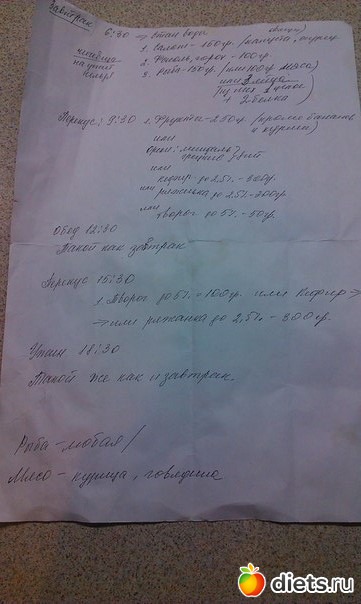 Завтрак
6:30 → Стан воды
1. Салат - 150гр. (капуста, огурец
овощи)
2. Фасоль, горох - 100гр.
3. Рыба - 150гр. (или 100гр. мяса)
или 3 яйца
1 целое
+ 2 белка
на ужин
нельзя
Перекус: 9:30 1. Фрукты - 250гр. (кроме банана
и
или
Орехи: миндаль
грецкие
или
кефир до 2,5% - 300гр.
или ряженка до 2,5% - 300гр.
или
творог до 5% - 50гр.
Обед 12:30
Такой как завтрак
Перекус 15:30
1. Творог до 5% - 100гр. или Кефир →
→ или ряженка до 2,5% - 300гр.
Ужин 18:30
Такой же как и завтрак.
Рыба - любая/
Мясо - курица, говядина
diets.ru